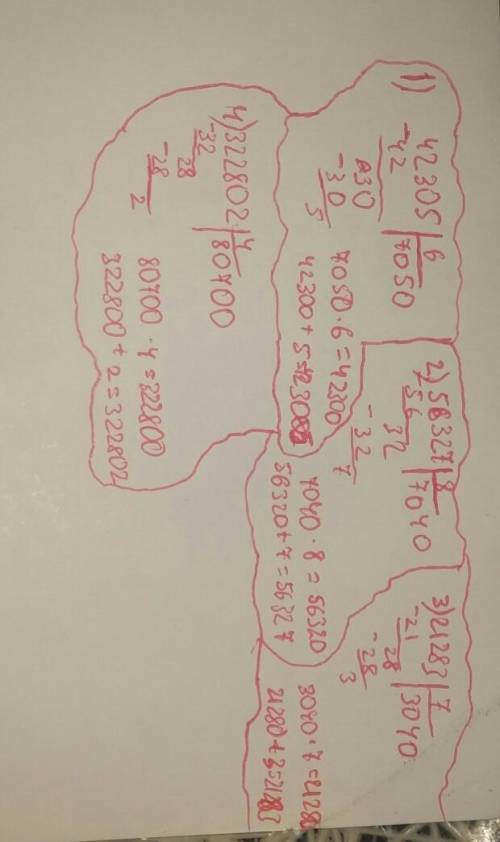 1) 42305 | 6
-42 7050
030
-30
5
7050 · 6 = 42300
42300 + 5 = 42305
2) 56327 | 8
56 7040
32
-32
7
7040 · 8 = 56320
56320 + 7 = 56327
3) 21283 | 7
-21 3040
28
-28
3
3040 · 7 = 2128
21280 + 3 = 21283
4) 322802 | 4
-32 80700
28
-28
2
80700 · 4 = 322800
322800 + 2 = 322802